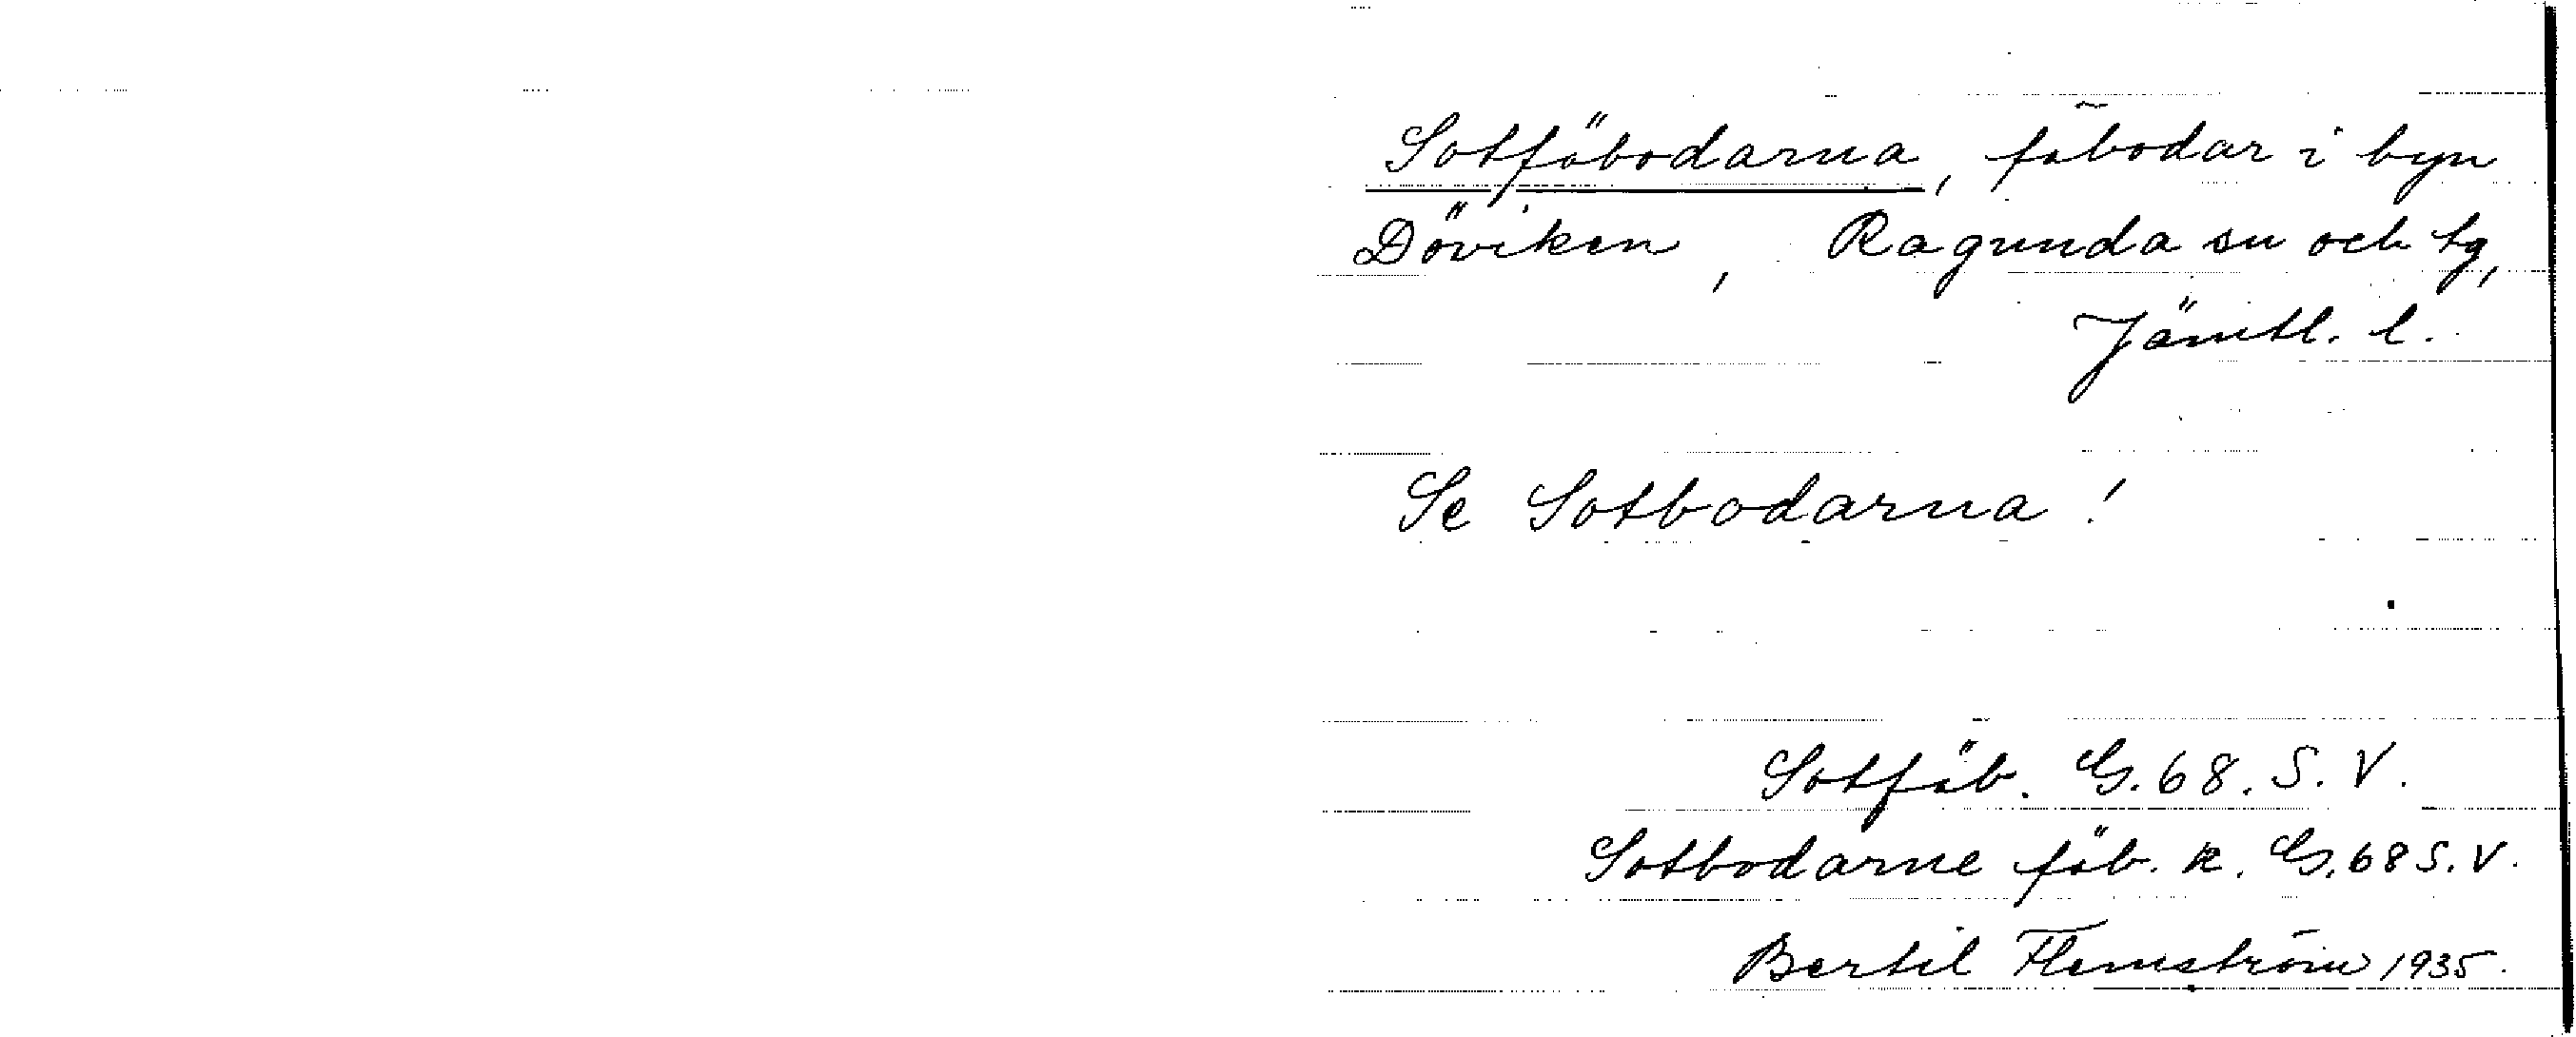 Sotfäbodarna, fäbodar i byn
Döviken, Ragunda sn och tg,
Jämtl. l.
Se Sotbodarna!
Sotfäb. G. 68. S. V.
Sotbodarne fäb. k. G. 68 S. V.
Bertil Flemström 1935.